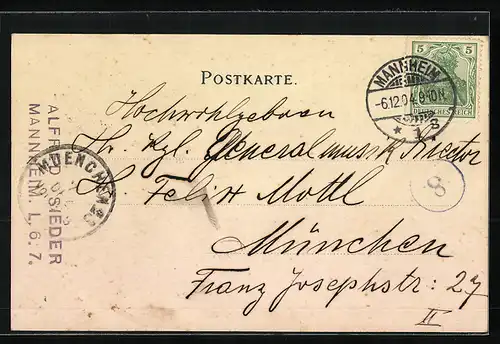 POSTKARTE.
5 5
DEUTSCHES REICH
MANNHEIM
-6.12.04.9-10N.
* 1 3
Hochwohlgeboren
Hr. Kgl. Generalmusikdirektor
H. Felix Mottl
München
Franz Josephstr: 27
II
8
MUENCHEN
ALFRED OSIEDER
MANNHEIM. L. 6: 7.